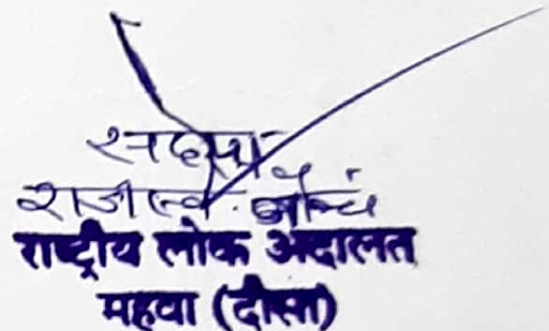 सदस्य
राजस्व बैंच
राष्ट्रीय लोक अदालत
महवा (दौसा)